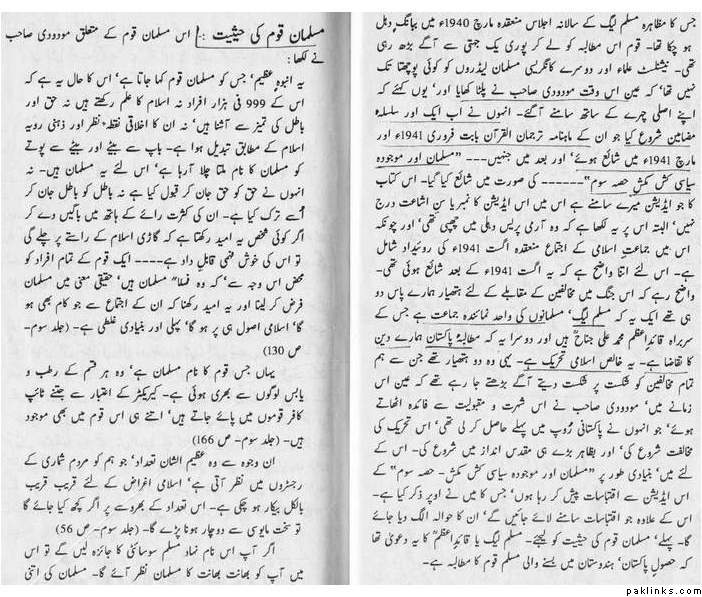 جس کا مظاہرہ مسلم لیگ کے سالانہ اجلاس منعقدہ مارچ 1940ء میں ببانگِ دہل
ہو چکا تھا۔ قوم اس مطالبہ کو لے کر پوری یک جہتی سے آگے بڑھ رہی
تھی۔ نیشنلسٹ علماء اور دوسرے کانگریسی مسلمان لیڈروں کو کوئی پوچھتا تک
نہیں تھا' کہ عین اس وقت مودودی صاحب نے پلٹا کھایا اور' یوں کہئے کہ
اپنے اصلی چہرے کے ساتھ سامنے آ گئے۔ انہوں نے اب ایک اور سلسلۂ
مضامین شروع کیا جو ان کے ماہنامہ ترجمان القرآن بابت فروری 1941ء اور
مارچ 1941ء میں شائع ہوئے' اور بعد میں جنہیں--- "مسلمان اور موجودہ
سیاسی کش مکش حصہ سوم"------ کی صورت میں شائع کیا گیا۔ اس کتاب
کا جو ایڈیشن میرے سامنے ہے اس میں اس ایڈیشن کا نمبر یا سنِ اشاعت درج
نہیں' البتہ اس پر یہ لکھا ہے کہ وہ آرمی پریس دہلی میں چھپی تھی' اور چونکہ
اس میں جماعتِ اسلامی کے اجتماع منعقدہ اگست 1941ء کی روئیداد شامل
ہے۔ اس لئے اتنا واضح ہے کہ یہ اگست 1941ء کے بعد شائع ہوئی تھی۔
واضح رہے کہ اس جنگ میں مخالفین کے مقابلے کے لئے ہتھیار ہمارے پاس دو
ہی تھے ایک یہ کہ مسلم لیگ' مسلمانوں کی واحد نمائندہ جماعت ہے جس کے
سربراہ قائدِاعظم محمد علی جناحؒ ہیں اور دوسرا یہ کہ مطالبۂ پاکستان ہمارے دین
کا تقاضا ہے۔ یہ خالص اسلامی تحریک ہے۔ یہی وہ دو ہتھیار تھے جن سے ہم
تمام مخالفین کو شکست پر شکست دیتے آگے بڑھتے جا رہے تھے کہ عین اس
زمانے میں' مودودی صاحب نے اس شہرت و مقبولیت سے فائدہ اٹھاتے
ہوئے' جو انہوں نے پاکستانی روپ میں پہلے حاصل کر لی تھی' اس تحریک کی
مخالفت شروع کی' اور بظاہر بڑے ہی مقدس انداز میں شروع کی۔ اس کے
لئے میں' بنیادی طور پر "مسلمان اور موجودہ سیاسی کش مکش۔ حصہ سوم" کے
اس ایڈیشن سے اقتباسات پیش کر رہا ہوں' جس کا میں نے اوپر ذکر کیا ہے۔
اس کے علاوہ جو اقتباسات سامنے لائے جائیں گے' ان کا حوالہ الگ دیا جائے
گا۔ پہلے' مسلمان قوم کی حیثیت کو لیجئے۔ مسلم لیگ یا قائدِاعظمؒ کا یہ دعویٰ تھا
کہ حصولِ پاکستان' ہندوستان میں بسنے والی مسلم قوم کا مطالبہ ہے۔
مسلمان قوم کی حیثیت : اس مسلمان قوم کے متعلق مودودی صاحب
نے لکھا:
یہ انبوہِ عظیم' جس کو مسلمان قوم کہا جاتا ہے' اس کا حال یہ ہے کہ
اس کے 999 فی ہزار افراد نہ اسلام کا علم رکھتے ہیں نہ حق اور
باطل کی تمیز سے آشنا ہیں' نہ ان کا اخلاقی نقطۂ نظر اور ذہنی رویہ
اسلام کے مطابق تبدیل ہوا ہے۔ باپ سے بیٹے اور بیٹے سے پوتے
کو مسلمان کا نام ملتا چلا آ رہا ہے' اس لئے یہ مسلمان ہیں۔ نہ
انہوں نے حق کو حق جان کر قبول کیا ہے نہ باطل کو باطل جان کر
اُسے ترک کیا ہے۔ ان کی کثرت رائے کے ہاتھ میں باگیں دے کر
اگر کوئی شخص یہ امید رکھتا ہے کہ گاڑی اسلام کے راستے پر چلے گی
تو اس کی خوش فہمی قابلِ داد ہے---- ایک قوم کے تمام افراد کو
محض اس وجہ سے' کہ وہ نسلاً مسلمان ہیں' حقیقی معنی میں مسلمان
فرض کر لینا اور یہ امید رکھنا کہ ان کے اجتماع سے جو کام بھی ہو
گا' اسلامی اصول ہی پر ہو گا' پہلی اور بنیادی غلطی ہے۔ (جلد سوم۔
ص 130)
یہاں جس قوم کا نام مسلمان ہے' وہ ہر قسم کے رطب و
یابس لوگوں سے بھری ہوئی ہے۔ کیریکٹر کے اعتبار سے جتنے ٹائپ
کافر قوموں میں پائے جاتے ہیں' اتنے ہی اس قوم میں بھی موجود
ہیں۔ (جلد سوم۔ ص 166)
ان وجوہ سے وہ عظیم الشان تعداد' جو ہم کو مردم شماری کے
رجسٹروں میں نظر آتی ہے' اسلامی اغراض کے لئے قریب قریب
بالکل بیکار ہو چکی ہے۔ اس تعداد کے بھروسے پر اگر کچھ کیا جائے گا
تو سخت مایوسی سے دوچار ہونا پڑے گا۔ (جلد سوم۔ ص 56)
اگر آپ اس نام نہاد مسلم سوسائٹی کا جائزہ لیں گے تو اس
میں آپ کو بھانت بھانت کا مسلمان نظر آئے گا۔ مسلمان کی اتنی
paklinks.com